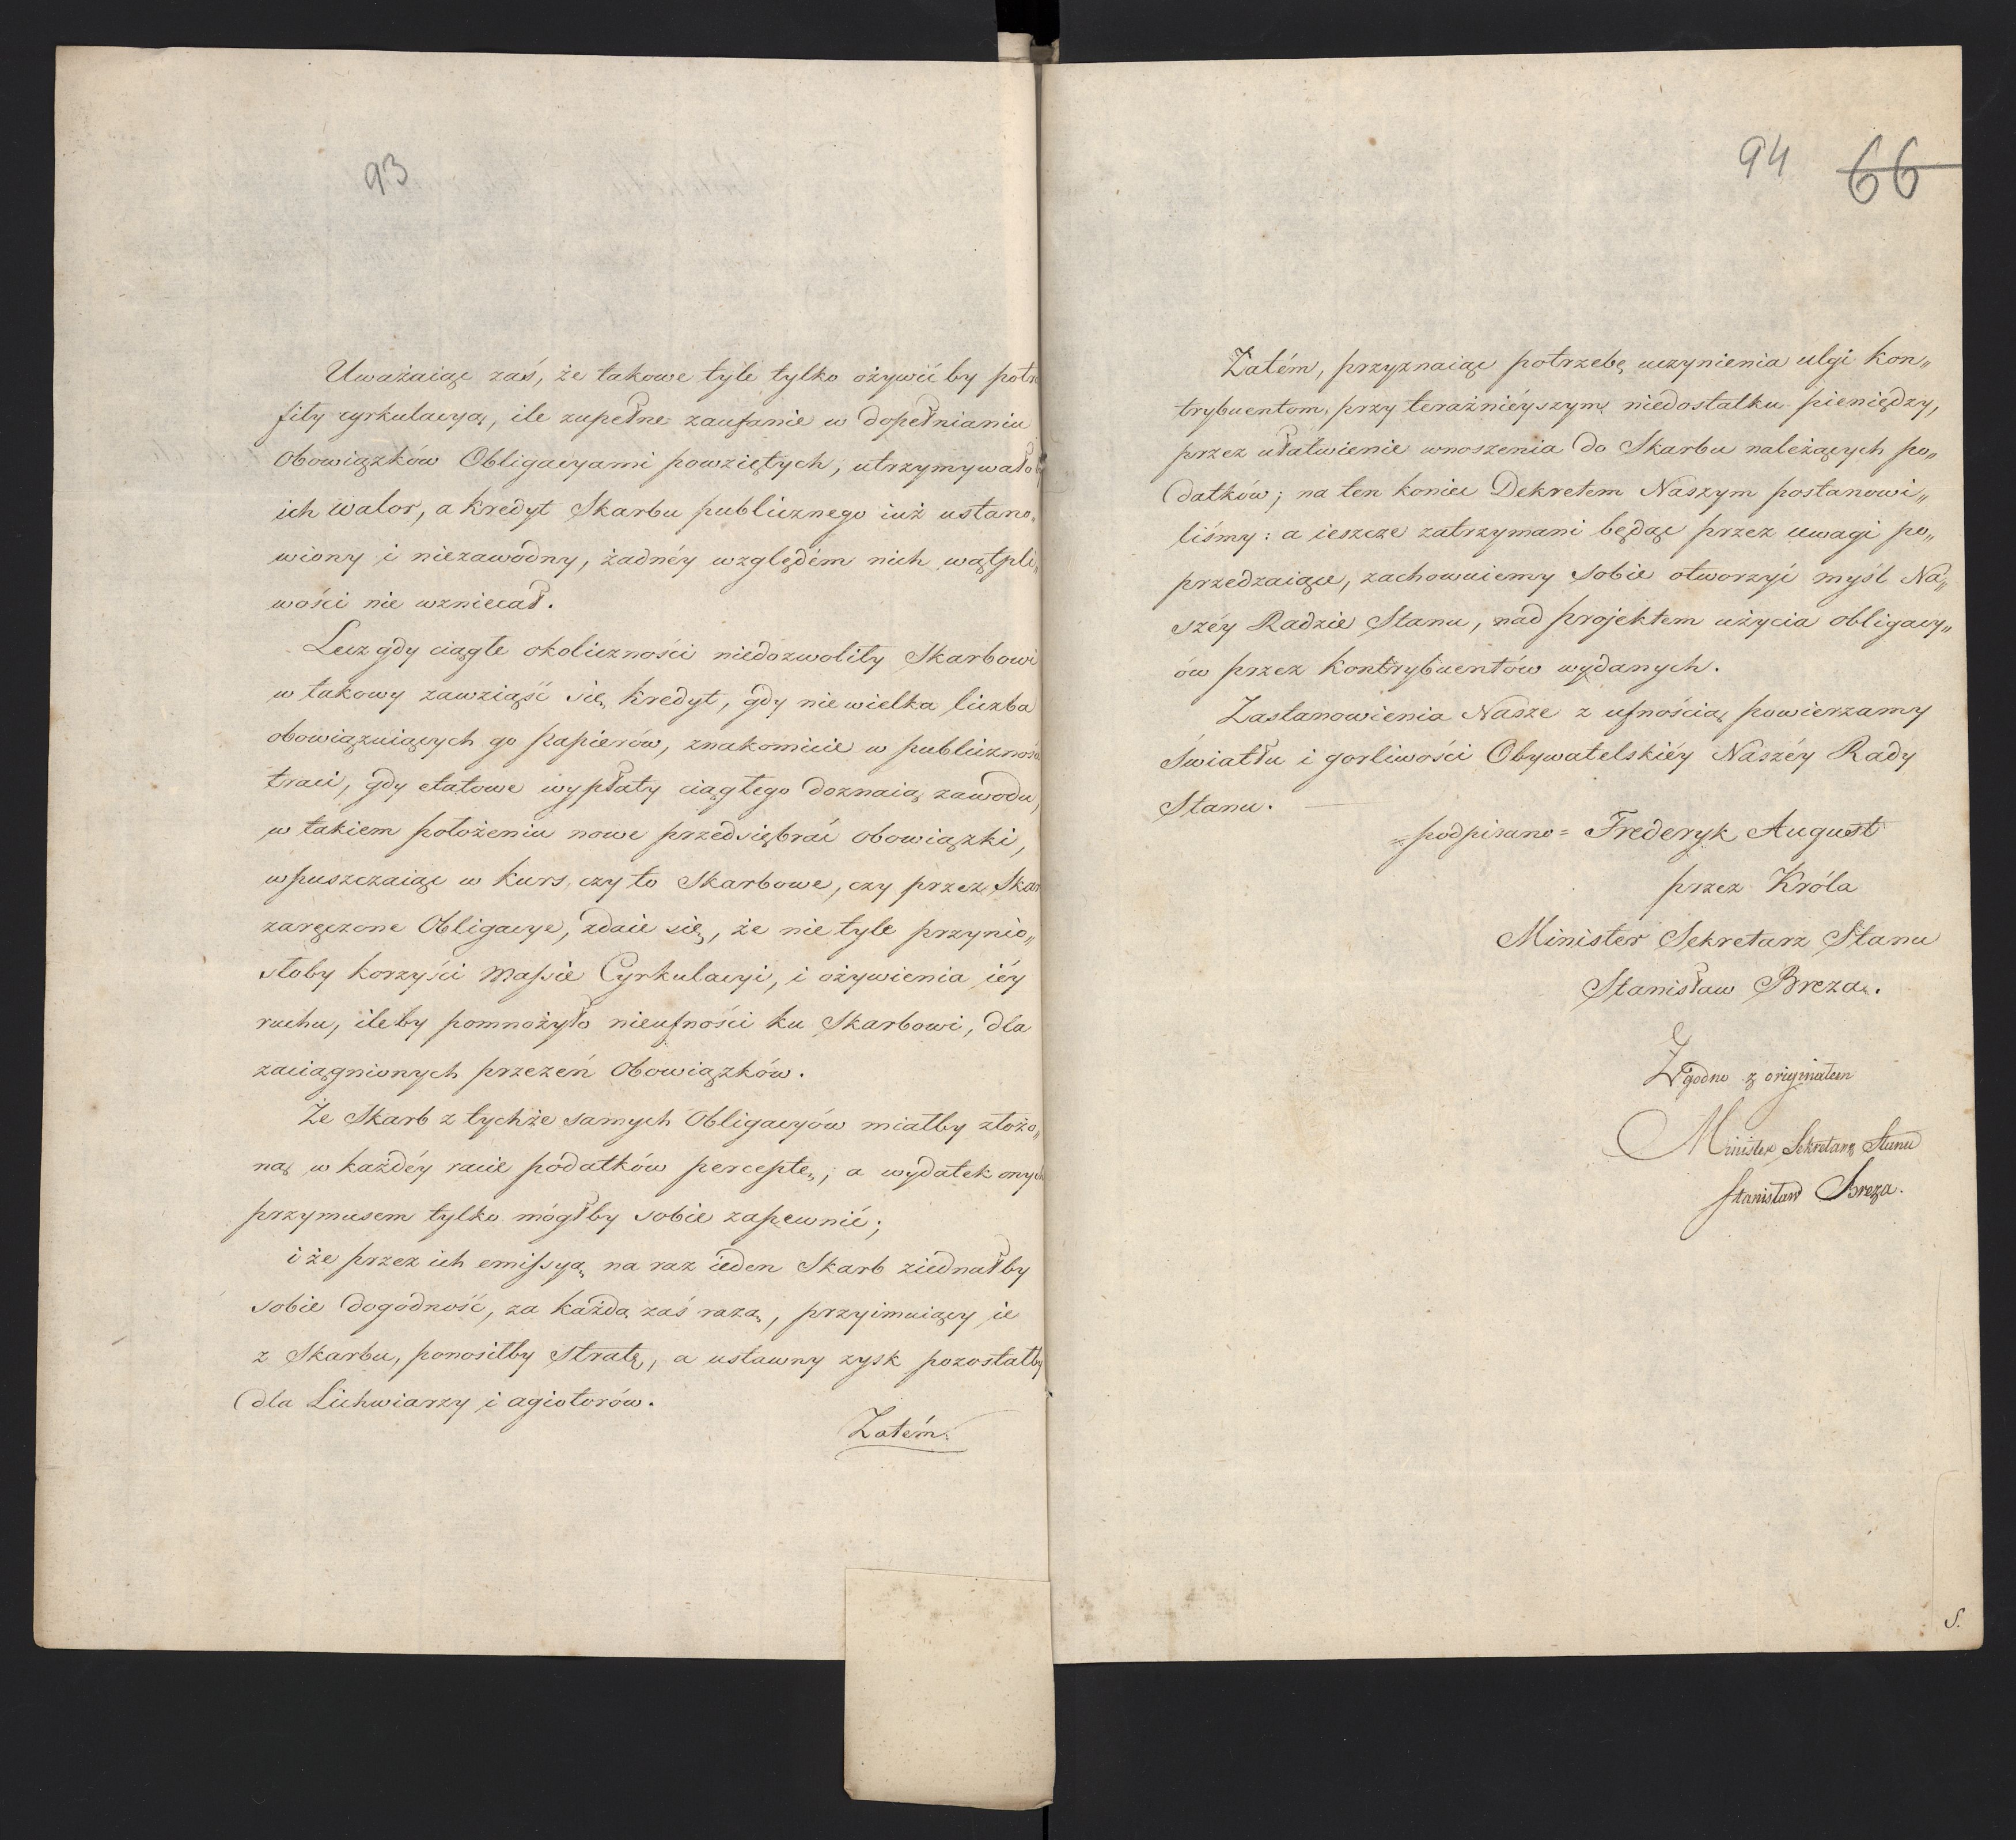 93
Uważaiąc zaś, że takowe tyle tylko ożywić by potra
fiły cyrkulacyą, ile zupełne zaufanie w dopełnianiu
Obowiązków Obligacyami powziętych, utrzymywałoby
ich walor, a kredyt Skarbu publicznego iuż ustano„
wiony i niezawodny, żadnéy względém nich wątpli„
wości nie wzniecał.
Lecz gdy ciągłe okoliczności niedozwoliły Skarbowi
w takowy zawziąść się kredyt, gdy nie wielka liczba
obowiązuiących go papierów, znakomicie w publiczności
traci, gdy etatowe wypłaty ciągłego doznaią zawodu,
w takiem położeniu nowe przedsiębrać obowiązki,
wpuszczaiąc w kurs, czy to Skarbowe, czy przez Skar
zaręczone Obligacye, zdaie się, że nie tyle przynio„
słoby korzyści Massie Cyrkulacyi, i ożywienia iéy
ruchu, ileby pomnożyło nieufności ku Skarbowi, dla
zaciągnionych przezeń Obowiązków.
Że Skarb z tychże samych Obligacyów miałby złożo„
ną w każdéy racie podatków perceptę; a wydatek onych
przymusem tylko mógłby sobie zapewnić;
i że przez ich emissyą na raz ieden Skarb ziednałby
sobie dogodność, za każdą zaś razą, przyimuiący ie
z Skarbu, ponosiłby stratę, a ustawny zysk pozostałby
dla Lichwiarzy i agiotorów.
Zatém
94 66
Zatém, przyznaiąc potrzebę uczynienia ulgi kon„
trybuentom, przy teraźnieyszym niedostatku pieniędzy,
przez ułatwienie wnoszenia do Skarbu należących po„
datków; na ten koniec Dekretem Naszym postanowi„
liśmy: a ieszcze zatrzymani będąc przez uwagi po„
przedzaiące, zachowuiemy sobie otworzyć myśl Na„
széy Radzie Stanu, nad projektem użycia obligacy„
ów przez kontrybuentów wydanych.
Zastanowienia Nasze z ufnością powierzamy
Światłu i gorliwości Obywatelskiéy Naszéy Rady
Stanu.
=podpisano= Frederyk August
przez Króla
Minister Sekretarz Stanu
Stanisław Breza.
Zgodno z oryginałem
Minister Sekretarz Stanu
Stanisław Breza.
S.